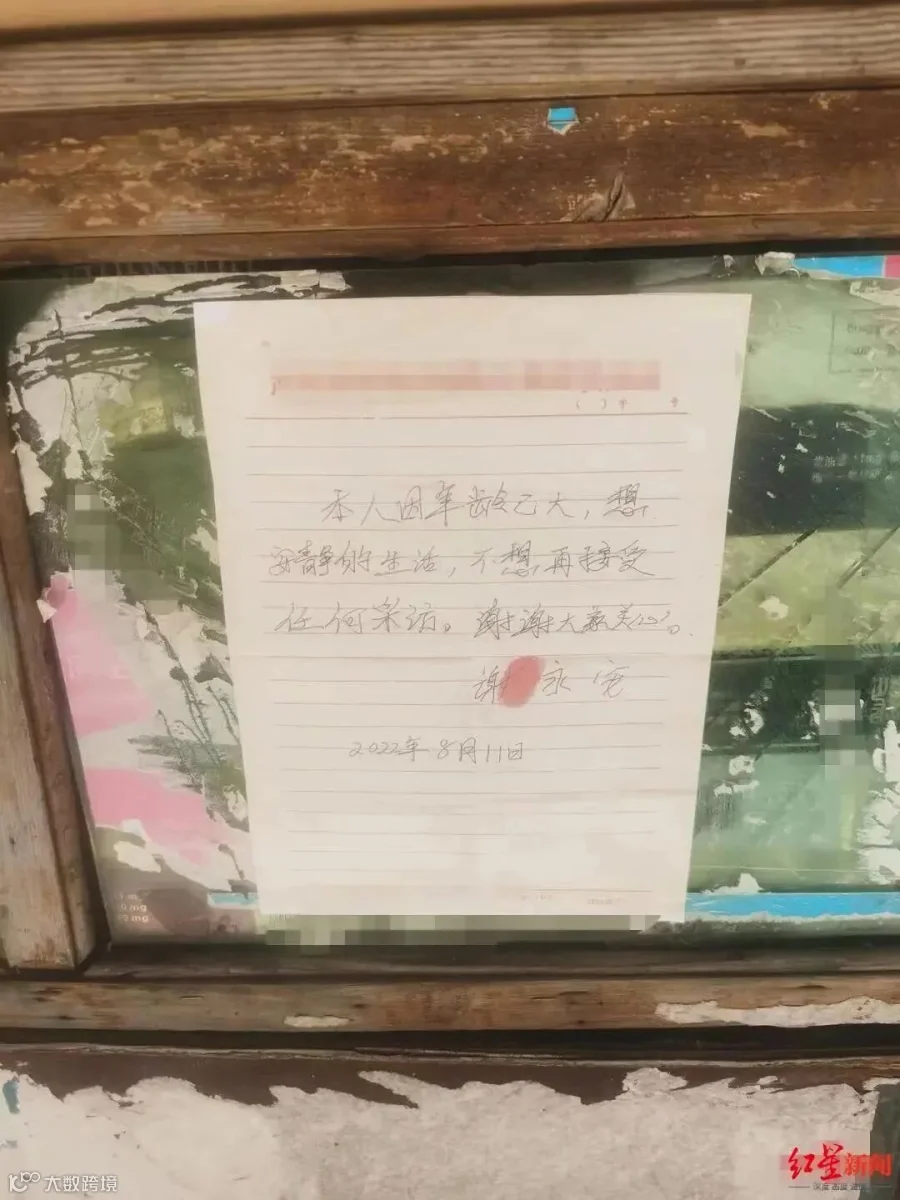 ( ) 字 号
本人因年龄已大，想
安静的生活，不想再接受
任何采访。谢谢大家关心。
谢永宽
2022年8月11日
mg
mg
大数跨境
红星新闻
深度 态度